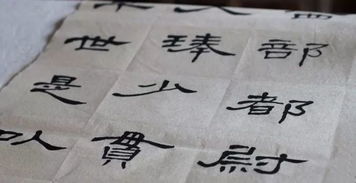 部都尉
琫少貫
世是以